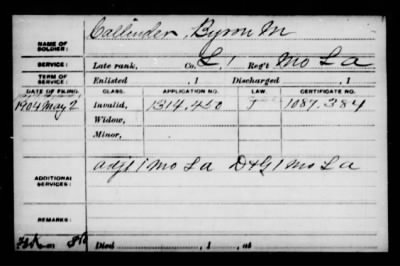 NAME OF SOLDIER: Callender, Byron M
SERVICE: Late rank, Co. L, 1 Reg't Mo L A
TERM OF SERVICE: Enlisted , 1 Discharged , 1
DATE OF FILING. CLASS. APPLICATION NO. LAW. CERTIFICATE NO.
1904 May 2 Invalid, 1314,450 J 1087,384
Widow,
Minor,
ADDITIONAL SERVICES: adjt 1 Mo L A D+G 1 Mo L A
REMARKS:
Died , 1 , at